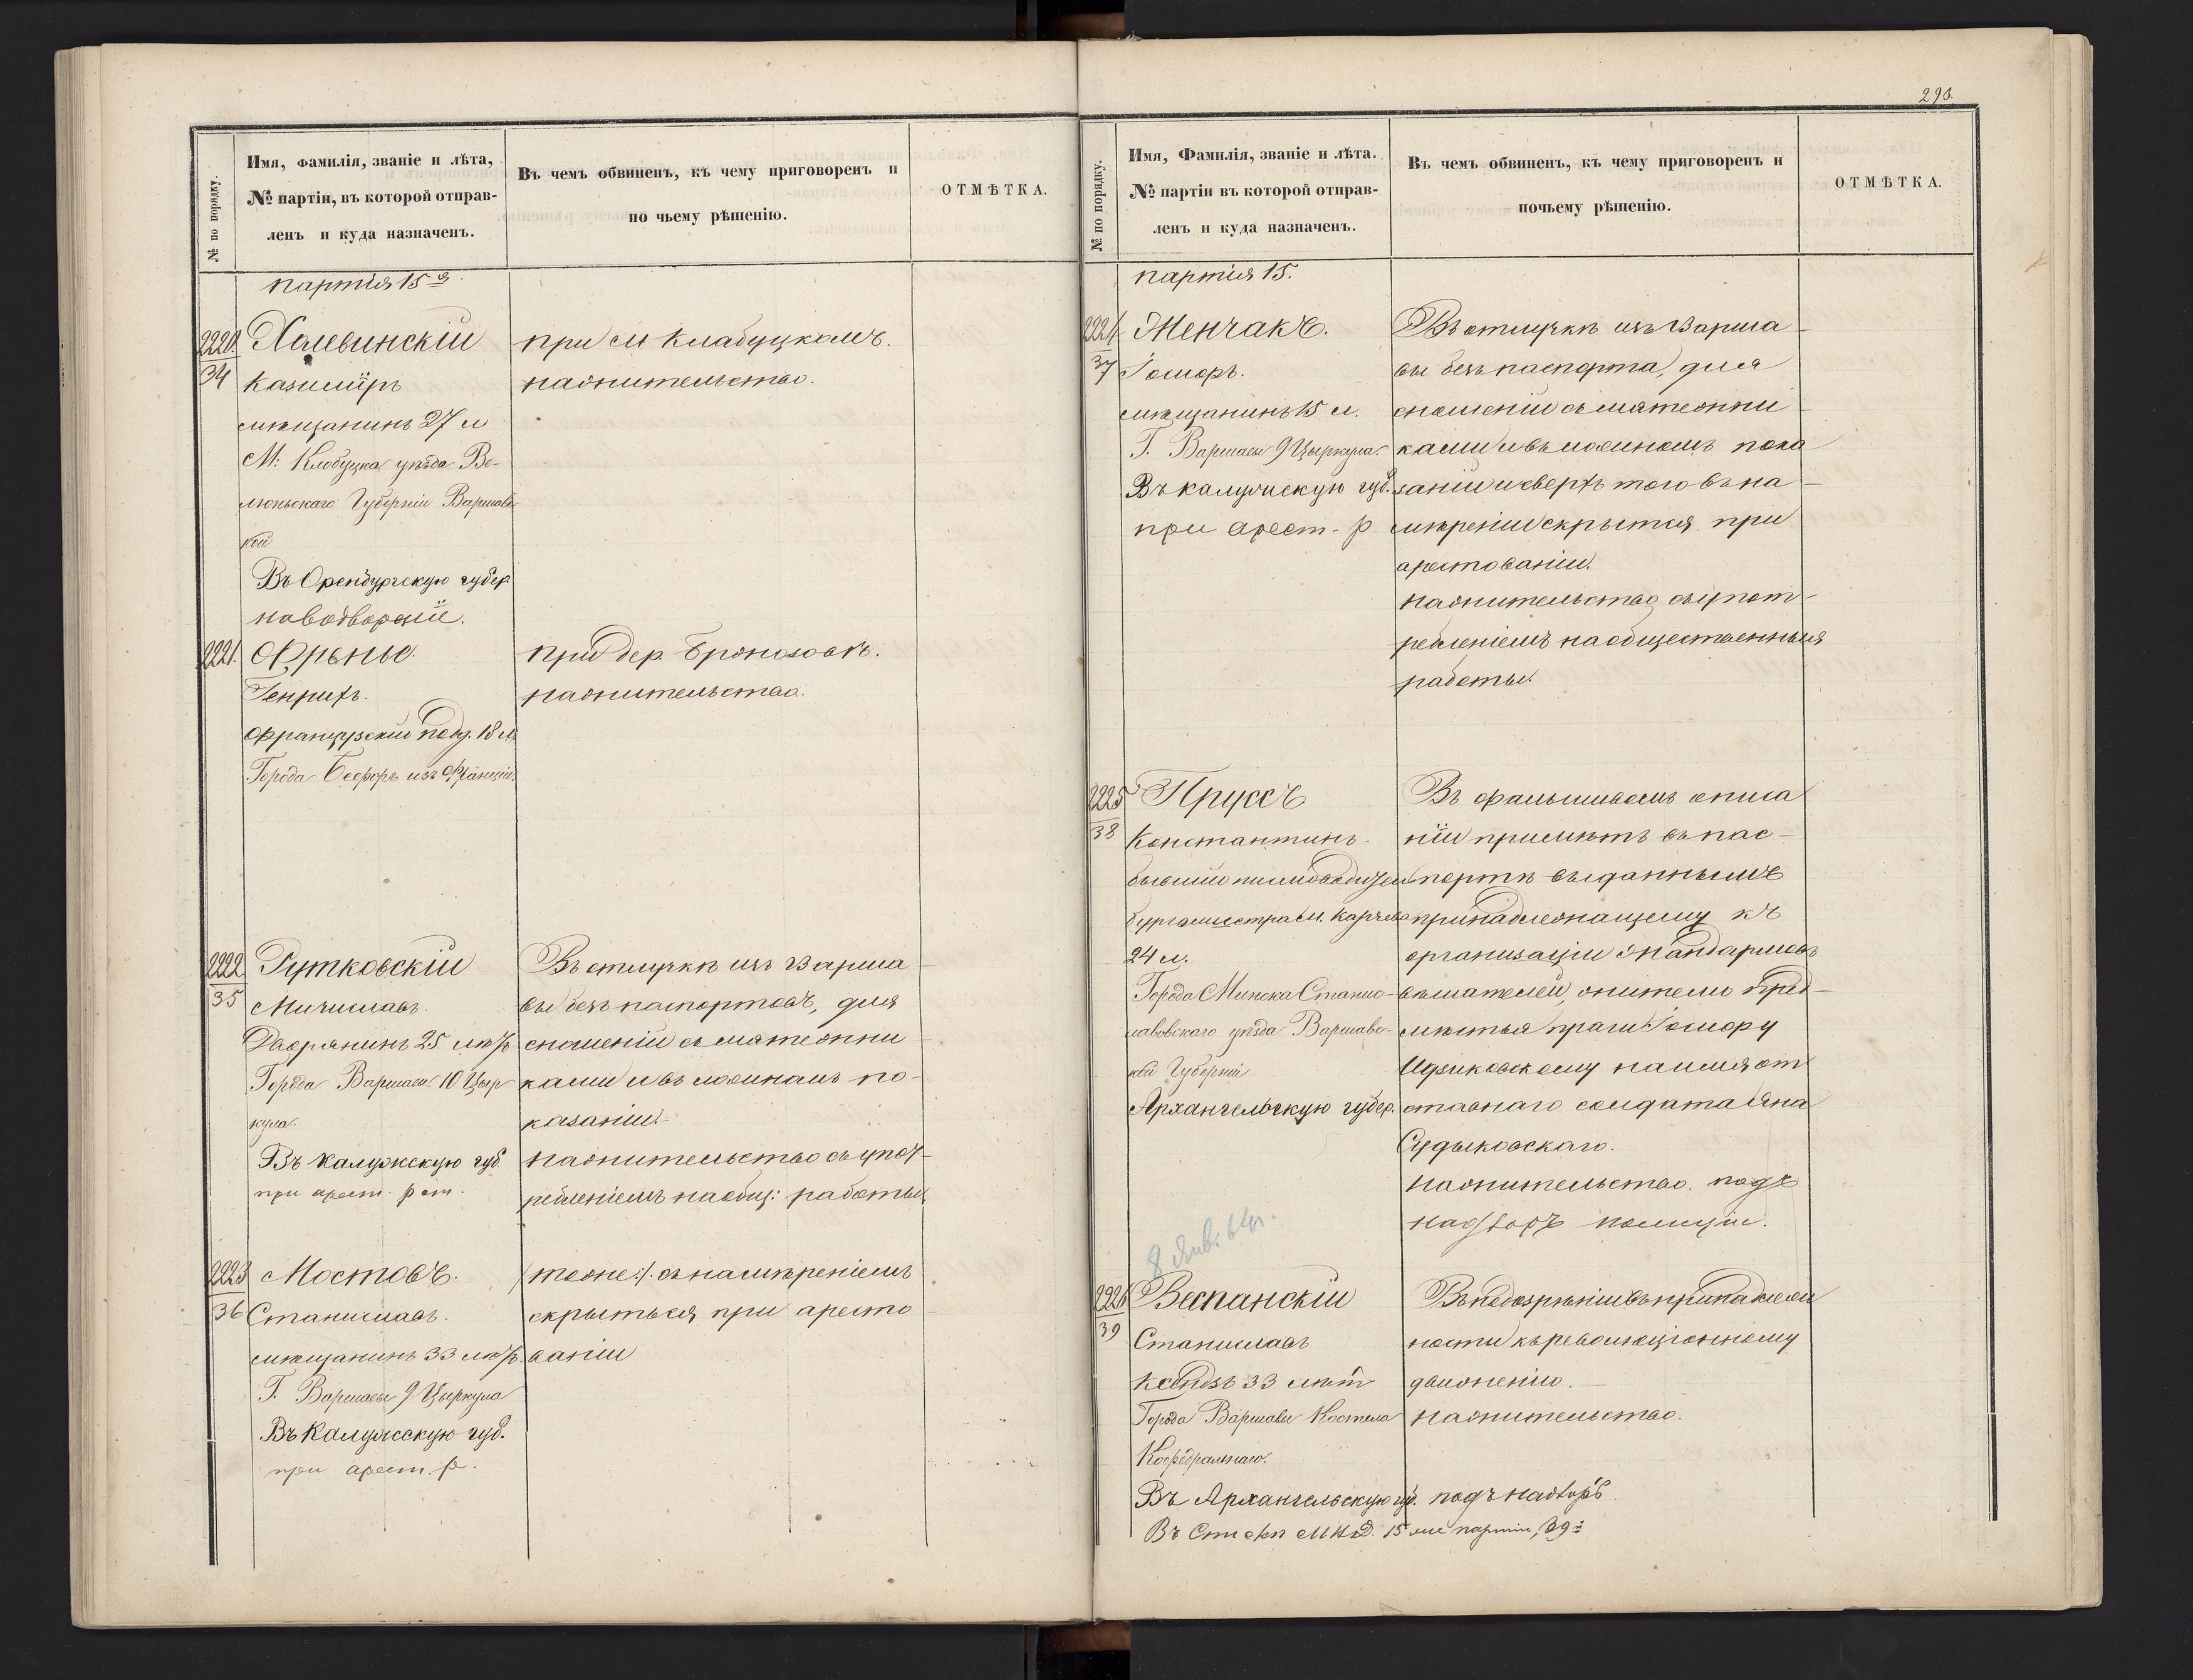 293.
№ по порядку.
Имя, фамилія, званіе и лѣта,
№ партіи, въ которой отправ-
ленъ и куда назначенъ.
Въ чемъ обвиненъ, къ чему приговоренъ и
по чьему рѣшенію.
ОТМѢТКА.
партія 15я.
2220.
34
Халевинскій
Казиміръ
мѣщанинъ 27 л
М: Клобуцка уѣзда Ве-
люньскаго Губерніи Варшавс-
кой
Въ Оренбургскую губер.
при м Клабуцкомъ.
нажительство.
2221.
Фрьнье.
Генрихъ.
Французскій подд. 18 л.
Города Бефоръ изъ Франціи.
при дер. Бронозовъ.
нажительство.
2222
35
Рутковскій
Мичиславъ.
Дворянинъ 25 лѣтъ
Города Варшавы 10 Цыр-
кула.
Въ Калужскую губ.
при арест. рот.
Въ отлучкѣ изъ Варша-
вы безъ паспортовъ, для
сношеній съ мятежни-
ками и въ ложномъ по-
казаніи.
нажительство съ упот-
ребленіемъ на общ: работы
2223
36
Мостовъ.
Станиславъ.
мѣщанинъ 33 лѣтъ.
Г. Варшавы 9 Цыркула
Въ Калужскую губ.
при арест. р.
/тоже:/. съ намѣреніемъ
скрыться при аресто-
ваніи
№ по порядку.
Имя, Фамилія, званіе и лѣта.
№ партіи въ которой отправ-
ленъ и куда назначенъ.
Въ чемъ обвиненъ, къ чему приговоренъ и
почьему рѣшенію.
ОТМѢТКА.
партія 15.
2224
37
Женчакъ.
Іосифъ.
мѣщанинъ 15 л.
Г. Варшавы 9 Цыркула.
Въ Калужскую губ.
при арест. р
Въ отлучкѣ изъ Варша-
вы безъ паспорта, для
сношеній съ мятежни-
ками и въ ложномъ пока
заніи и сверхъ того въ на-
мѣреніи скрыться при
арестованіи.
нажительство съ упот-
ребленіемъ на общественныя
работы.
2225
38
Пруссъ
Константинъ.
бургомистра м. Карчева
24 л.
Города Минска Станис-
лавовскаго уѣзда Варшавс-
кой Губерніи
Архангельскую губер.
Въ фальшивомъ описа
ніи примѣтъ въ пас-
портѣ выданнымъ
принадлежащему къ
организаціи жандармовъ
вѣшателей, жителю пред-
мѣстья праги Іосифу
на имя от
ставнаго солдата Яна
нажительство. подъ
надзоръ полиціи.
8 Янв: 64 г.
2226
39
Веспанскій
Станиславъ
Ксендзъ 33 лѣт
Города Варшавы Костела
Кафедральнаго.
Въ Архангельскую губ. подъ надзоръ
Въ подозрѣніи въ принадлеж
ности къ революціонному
движенію.
нажительство.
Въ Списк. М В Д. 15ые партіи, 39: